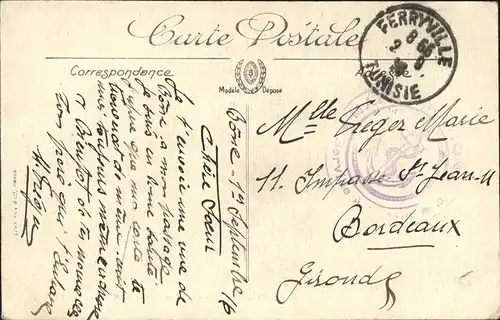 Carte Postale
Correspondance
Adresse
Modèle Déposé
FERRYVILLE
TUNISIE
Bône 1er Septembre 16
Chère Sœur
Je t'envoie une vue de
Bône à mon passage
Je suis en bonne santé
que ma carte te
trouve de même suis
moi toujours même adresse
à Bientôt de tes nouvelles
Ton frère qui t'embrasse
Mlle Préger Marie
11. Impasse St Jean
Bordeaux
Gironde